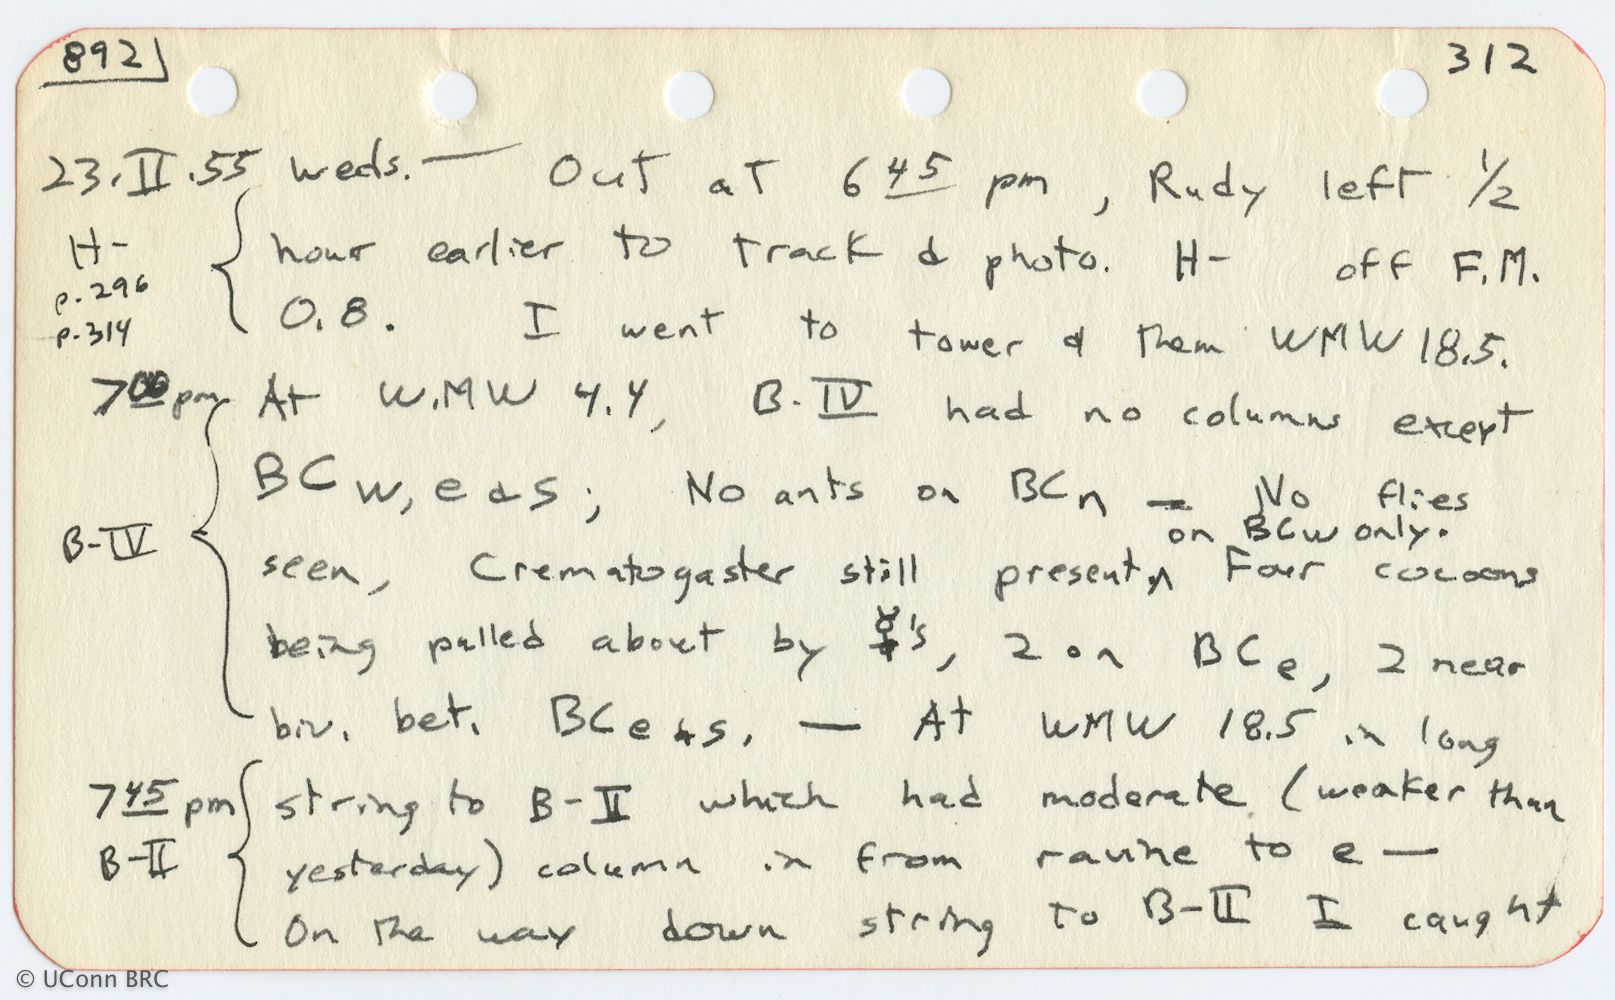 892 312
23.II.55 Weds. — Out at 6 45 pm, Rudy left 1/2
H- hour earlier to track & photo. H- off F.M.
p.296
p.314 0.8. I went to tower & them WMW 18.5.
7 00 pm At W.MW 4.4, B-IV had no columns except
BCw, e & s; No ants on BCn — No flies
on BCw only.
B-IV seen, Crematogaster still present,^ Four cocoons
being pulled about by ☿'s, 2 on BCe, 2 near
biv. bet. BCe & s. — At WMW 18.5 in long
7 45 pm string to B-II which had moderate (weaker than
B-II yesterday) column in from ravine to e —
On the way down string to B-II I caught
© UConn BRC